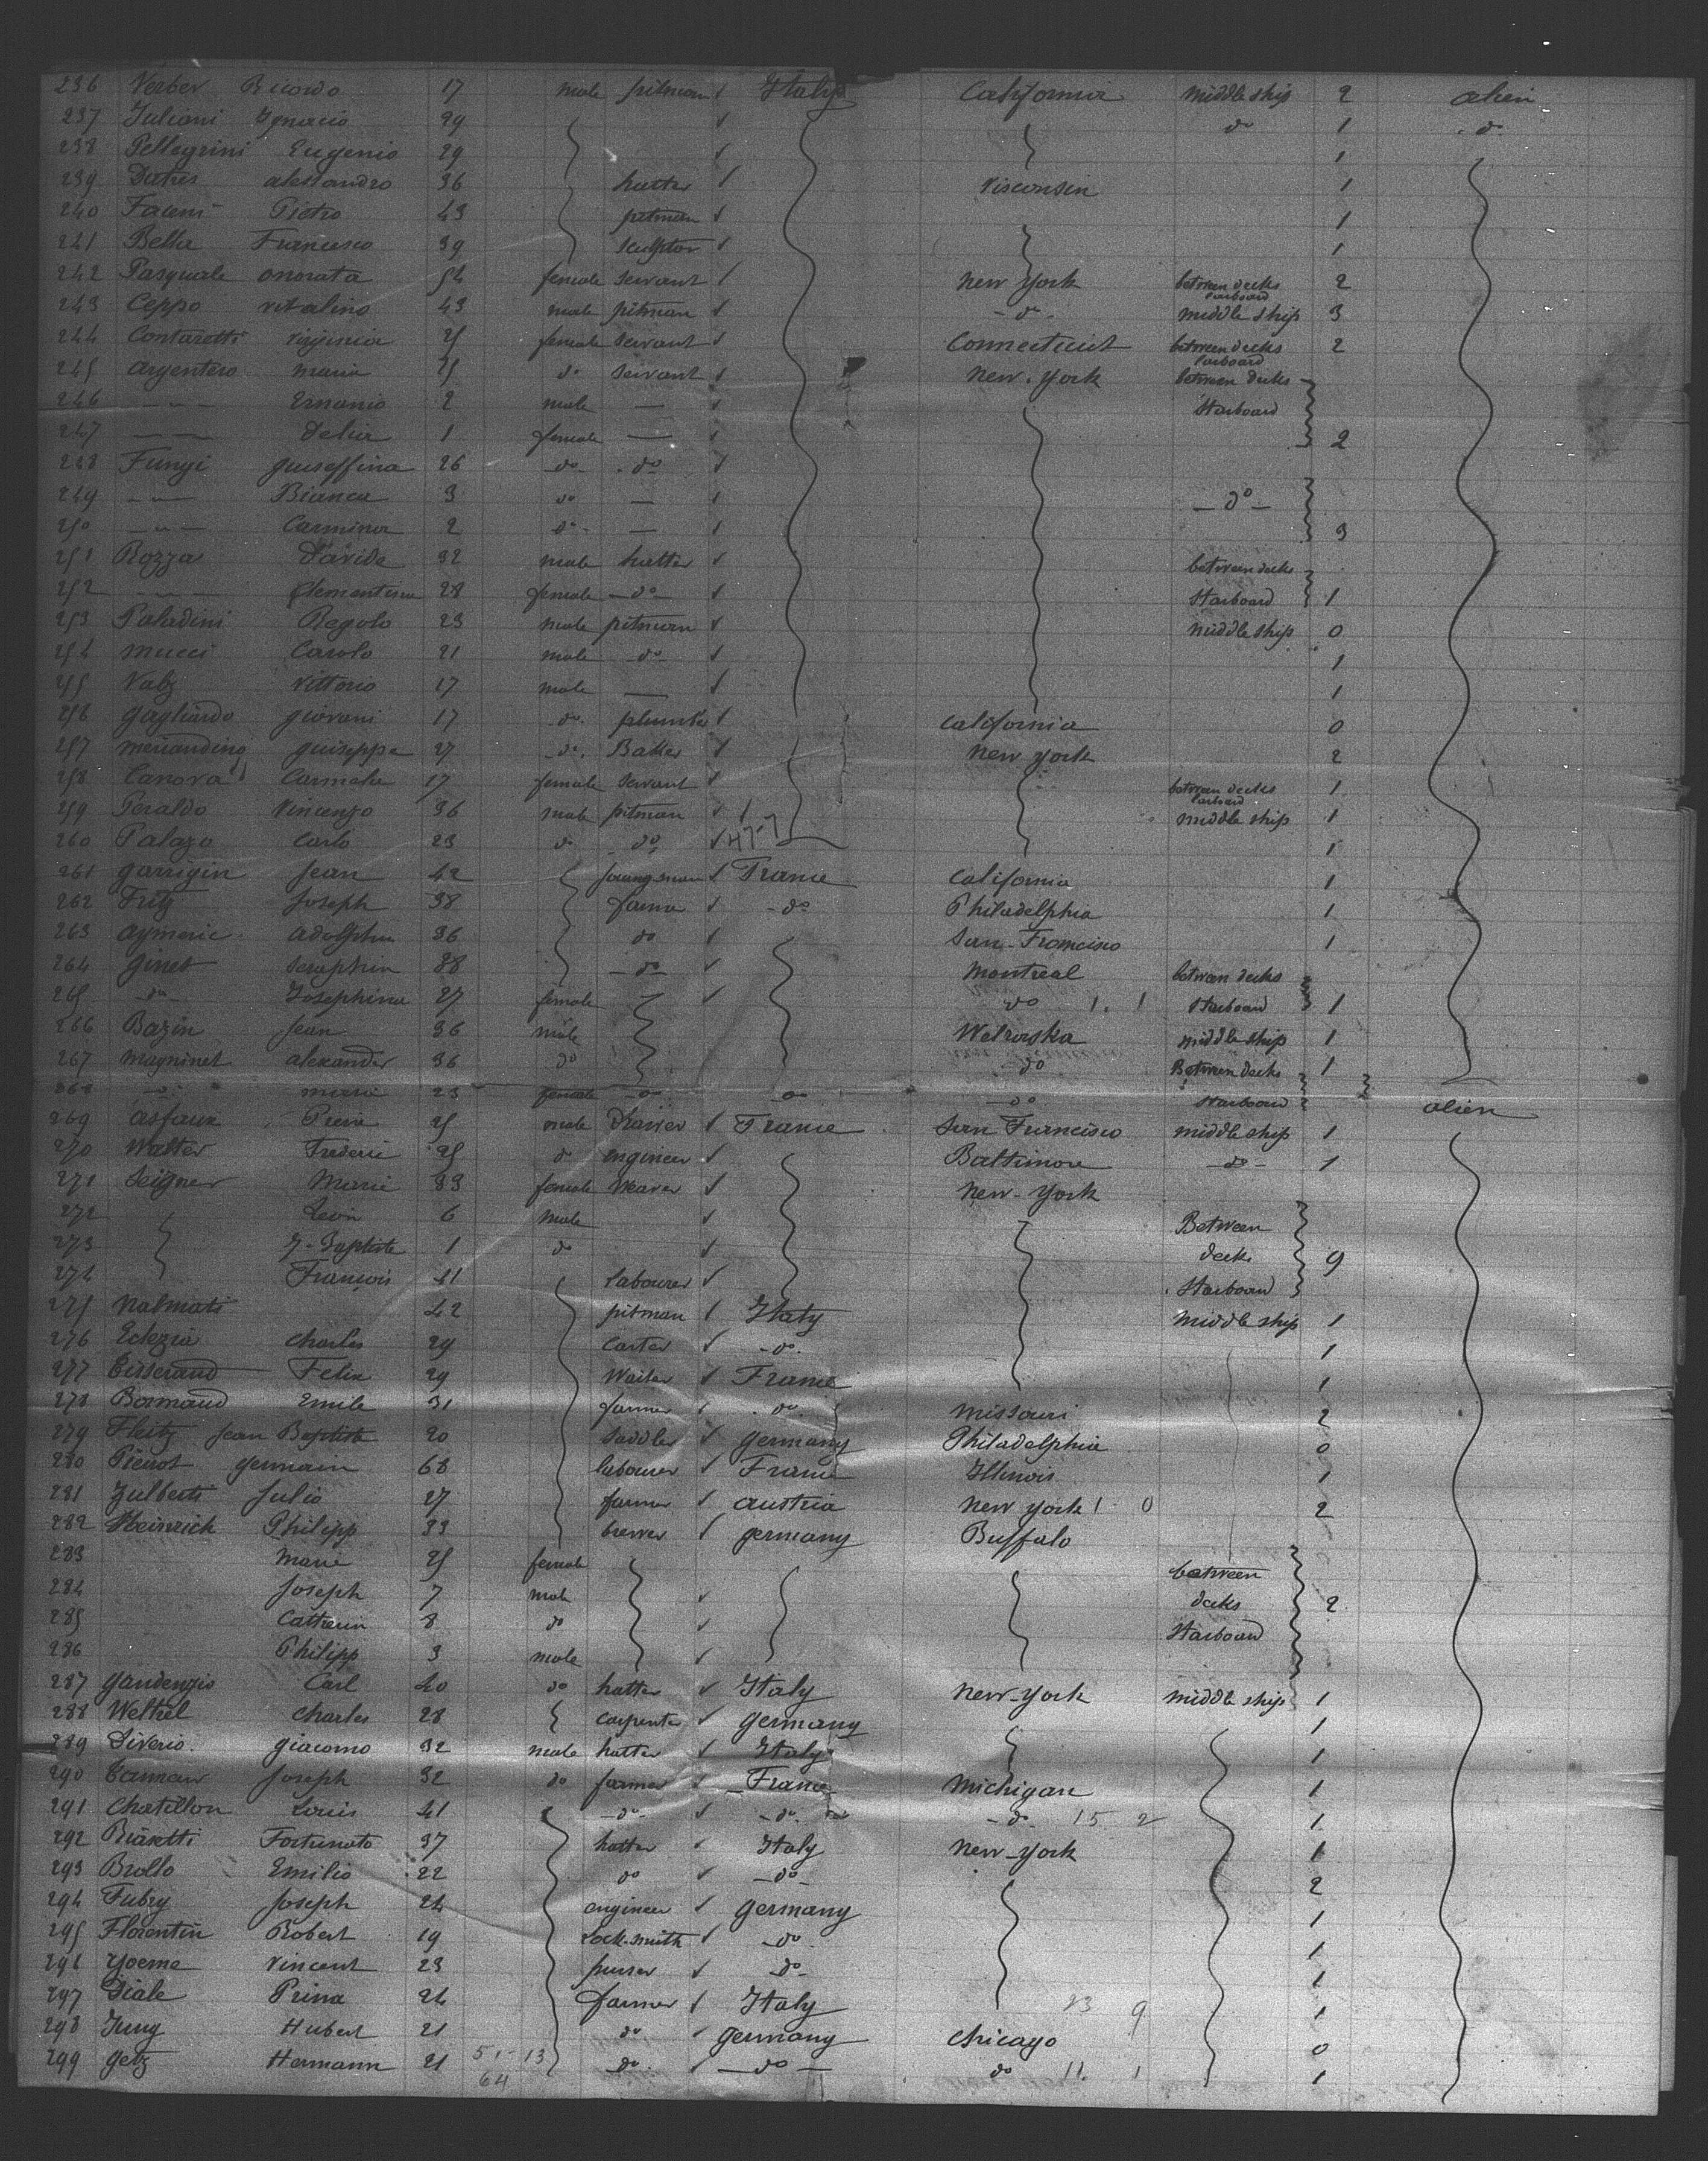 236 Verber Ricordo 17 male pitman Italy California middle ship 2 alien
237 Juliani Ignacio 29 do 1 do
238 Pellegrini Eugenio 29 1
239 alessandro 36 hatter Visconsin 1
240 Pietro 43 pitman 1
241 Bella Francesco 39 sculptor 1
242 Pasquale onorata 54 female servant new York between decks starboard 2
243 Ceppo vitalino 43 male pitman do middle ship 3
244 Contaretti virginia 25 female servant Connecticut between decks starboard 2
245 argentero maria 25 do servant new-york between decks
246 Ernanio 2 male — starboard
247 Delia 1 female — 2
248 Fungi guiseffina 26 do do
249 Bianca 3 do — do
250 Carmina 2 do — 3
251 Rozza Davide 32 male hatter between decks
252 Clementina 28 female do starboard 1
253 Paladini Regolo 23 male pitman middle ship 0
254 mucci Carolo 21 male do 1
255 Valz vittorio 17 male — 1
256 gagliardo giovani 17 do plumber California 0
257 guiseppe 27 do Baker new york 2
258 Canova Carmela 17 female servant between decks starboard 1
259 Peraldo vincenzo 36 male pitman middle ship 1
260 Palazo Carlo 23 do do 1
261 garrigin Jean 42 France California 1
262 Fritz Joseph 38 farmer do Philadelphia 1
263 aymeric adolphe 36 do San-Francisco 1
264 ginet Seraphin 38 do montreal between decks
265 do Josephine 27 female do 1. 1 starboard 1
266 Bazin Jean 36 male middle ship 1
267 magninet alexander 36 do do Between decks 1
268 marie 23 female do do do starboard alien
269 asfaux Pierre 25 male France San Francisco middle ship 1
270 Walter Frederic 25 do engineer Baltimore do 1
271 Seigner Marie 33 female weaver new-york
272 Leon 6 male Between
273 J-Baptiste 1 do decks 9
274 François 41 labourer starboard
275 nalmati 42 pitman Italy middle ship 1
276 charles 29 carter do 1
277 Cisseraud Felix 29 Waiter France 1
278 Bormand Emile 31 farmer do missouri 2
279 Fleitz Jean Baptiste 20 saddler germany Philadelphia 0
280 Pierrot germain 68 labourer France Illinois 1
281 Zulberti Julio 27 farmer austria new york 1 0 2
282 Heinrich Philipp 33 brewer germany Buffalo
283 Marie 25 female between
284 Joseph 7 male decks 2
285 Catherin 8 do starboard
286 Philipp 3 male
287 gaudenzio Carl 40 do hatter Italy new-york middle ship 1
288 Welthel charles 28 carpenter germany 1
289 Siverio giacomo 32 male hatter Italy 1
290 Joseph 32 do farmer France michigan 1
291 Chatillon Louis 41 do do do 15 2 1
292 Biasetti Fortunato 37 hatter Italy new-york 1
293 Brollo Emilio 22 do do 2
294 Fubry Joseph 24 engineer germany 1
295 Florentin Robert 19 Lock-smith do 1
296 yoeme vincent 23 purser do 1
297 Prina 24 farmer Italy 23 9 1
298 Jung Hubert 21 do germany chicago 0
299 getz Hermann 21 51-13 do do do 11. 1 1
64